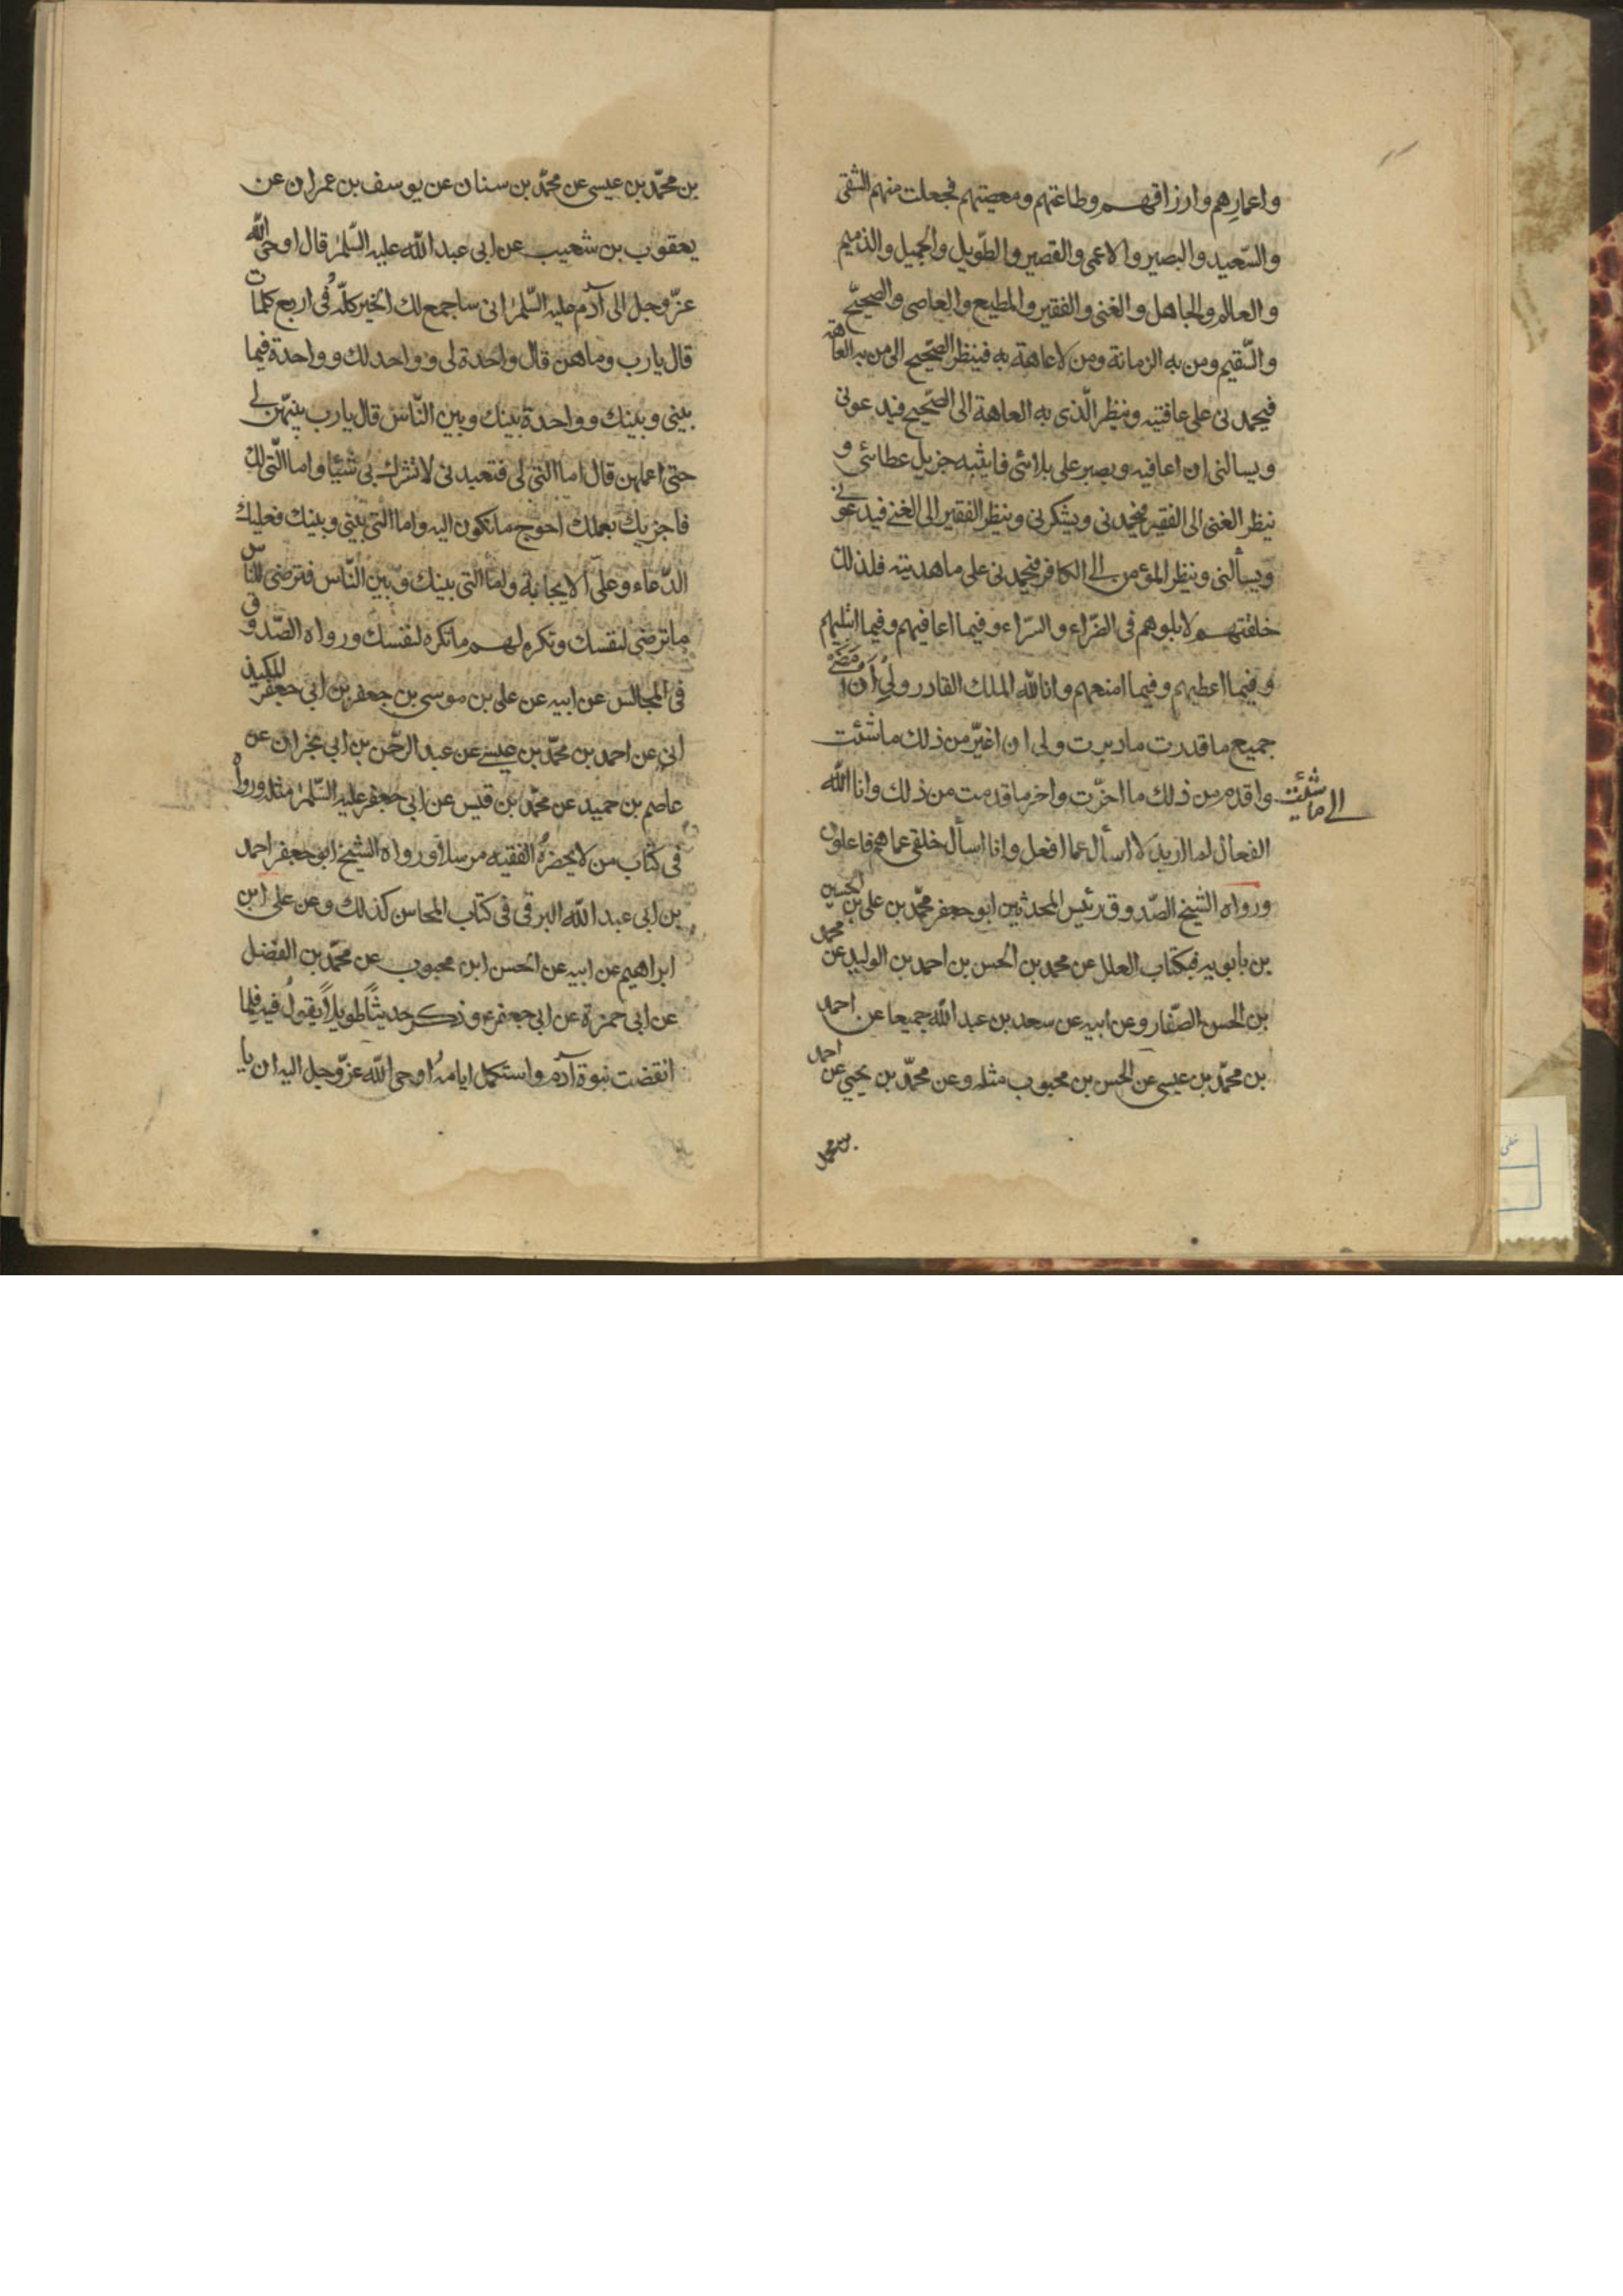 واعمارهم وارزاقهم وطاعتهم ومعصيتهم فجعلت منهم الشقى
والسّعيد والبصير والاعمى والقصير والطّويل والجميل والذميم
والعالم والجاهل والغنى والفقير والمطيع والعاصى والصحيح
والسّقيم ومن به الزمانة ومن لا عاهة به فينظر الصّحيح الى من به العاهة
فيحمدنى على عافيته وينظر الّذى به العاهة الى الصّحيح فيدعونى
ويسالنى ان اعافيه ويصبر على بلائى فاثيبه جزيل عطائى و
ينظر الغنى الى الفقير فيحمدنى ويشكرنى وينظر الفقير الى الغنى فيدعونى
ويسألنى وينظر المؤمن الى الكافر فيحمدنى على ما هديته فلذلك
خلقتهم لابلوهم فى الضّراء والسّراء وفيما اعافيهم وفيما ابتليهم
وفيما اعطيهم وفيما امنعهم وانا الله الملك القادر ولى أن امضى
جميع ما قدرت ما دبرت ولى ان اغيّر من ذلك ما شئت
الى ما شئت
واقدم من ذلك ما اخّرت واخر ما قدمت من ذلك وانا الله
الفعال لما اريد لا اسأل عما افعل وانا اسأل خلقى عما هم فاعلون
ورواه الشيخ الصّدوق رئيس المحدثين ابو جعفر محمّد بن على بن الحسين
بن بابويه فى كتاب العلل عن محمد بن الحسن بن احمد بن الوليد عن محمد
بن الحسن الصّفار وعن ابيه عن سعد بن عبد الله جميعا عن احمد
بن محمّد بن عيسى عن الحسن بن محبوب مثله وعن محمّد بن يحيى عن احمد
بن محمد
بن محمّد بن عيسى عن محمّد بن سنان عن يوسف بن عمران عن
يعقوب بن شعيب عن ابى عبد الله عليه السّلم قال اوحى الله
عزّ وجل الى آدم عليه السّلم انى ساجمع لك الخير كلّه فى اربع كلمات
قال يا رب وما هن قال واحدة لى وواحد لك وواحدة فيما
بينى وبينك وواحدة بينك وبين النّاس قال يا رب بينهّن لى
حتى اعلمهن قال اما التى لى فتعبدنى لا تشرك بى شيئا واما الّتى لك
فاجزيك بعملك احوج ما تكون اليه واما التى بينى وبينك فعليك
الدّعاء وعلىّ الاجابة واما التى بينك وبين النّاس فترضى للناس
ما ترضى لنفسك وتكره لهم ما تكره لنفسك ورواه الصّدوق
فى المجالس عن ابيه عن على بن موسى بن جعفر بن ابى جعفر الكميذ
انى عن احمد بن محمّد بن عيسى عن عبد الرحمن بن ابى نجران عن
عاصم بن حميد عن محمّد بن قيس عن ابى جعفر عليه السّلم مثله ورواه
فى كتاب من لا يحضره الفقيه مرسلا ورواه الشيخ ابو جعفر احمد
بن ابى عبد الله البرقى فى كتاب المحاسن كذلك وعن على ابن
ابراهيم عن ابيه عن الحسن ابن محبوب عن محمّد بن الفضل
عن ابى حمزة عن ابى جعفر ع وذكر حديثاً طويلاً يقول فيه فلما
انقضت نبوة آدم واستكمل ايامه اوحى الله عزّ وجل اليه ان يا